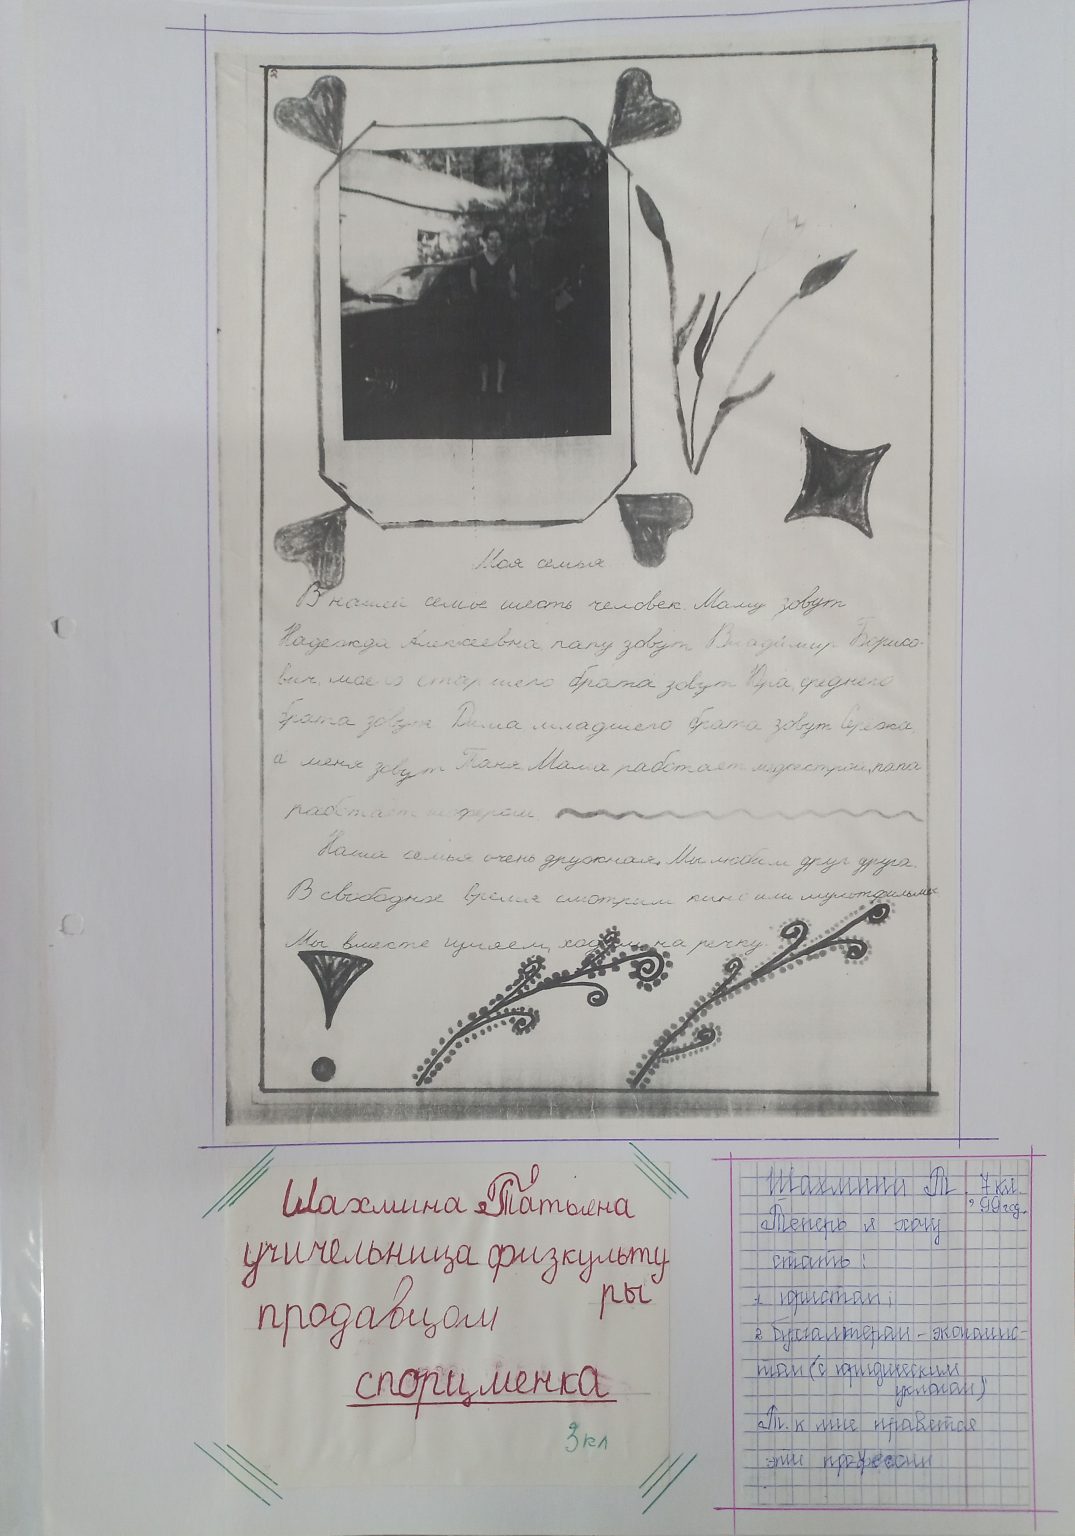 2
Моя семья
В нашей семье шесть человек. Маму зовут
Надежда Алексеевна, папу зовут Владимир Борисо-
вич, моего старшего брата зовут Юра, среднего
брата зовут Дима младшего брата зовут Сережа,
а меня зовут Таня. Мама работает медсестрой, папа
работает шофером.
Наша семья очень дружная. Мы любим друг друга.
В свободное время смотрим кино или мультфильмы.
Мы вместе гуляем, ходим на речку.
Шахмина Татьяна
учичельница физкульту
ры
продавцом
спорцменка
3 кл
Шахмини Т. 7 кл.
99 год.
Теперь я хочу
стать:
1. юристом;
2. бухалтером - экономис-
том (с юридическим
уклоном)
Т. к мне нравятся
эти професси